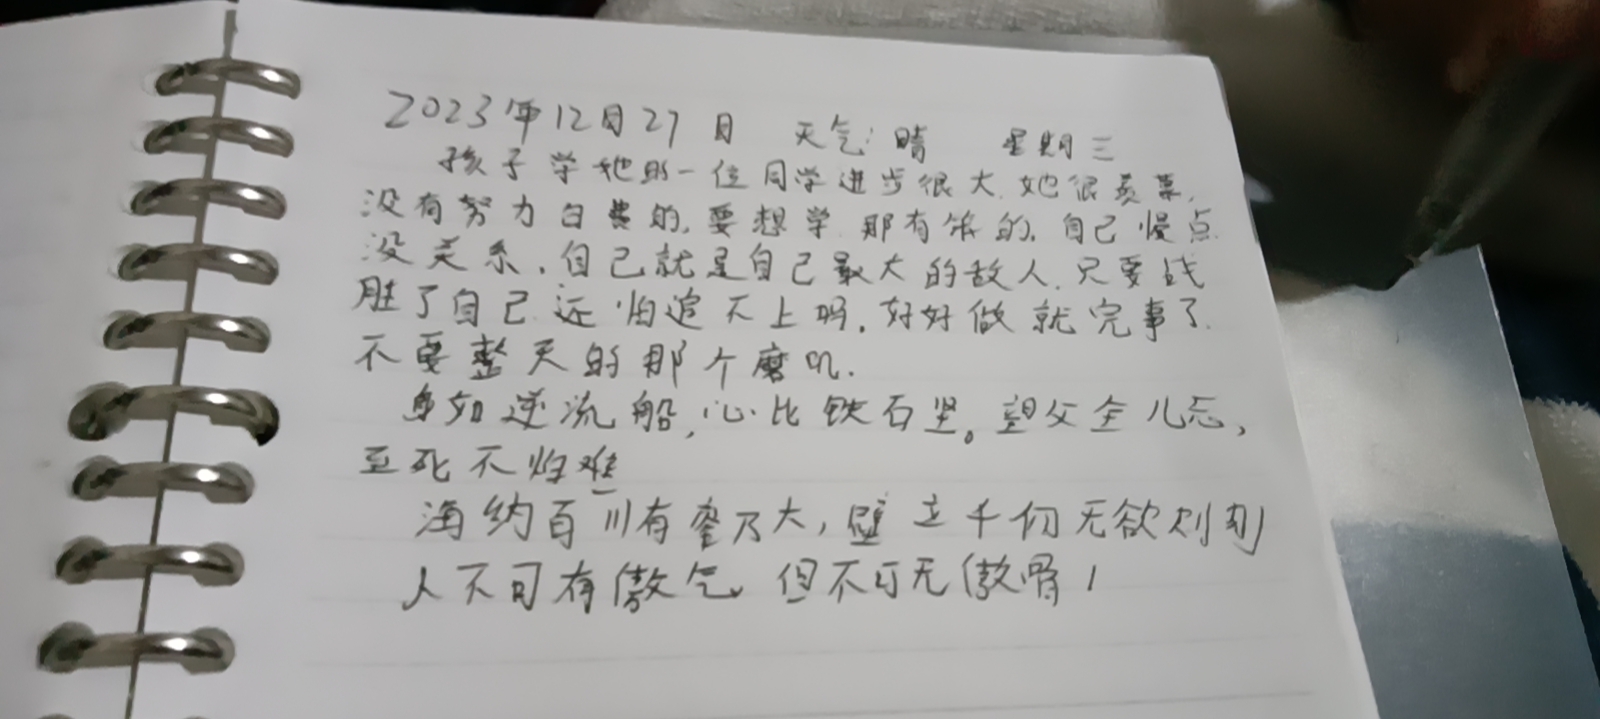 2023年12月27日 天气:晴 星期三
孩子学她的一位同学进步很大.她很羡慕,
没有努力白费的,要想学.那有笨的.自己慢点
没关系.自己就是自己最大的敌人.只要战
胜了自己.还怕追不上吗.好好做就完事了.
不要整天的那个磨叽.
身如逆流船,心比铁石坚。望父全儿志,
至死不怕难
海纳百川有容乃大,壁立千仞无欲则刚
人不可有傲气,但不可无傲骨!